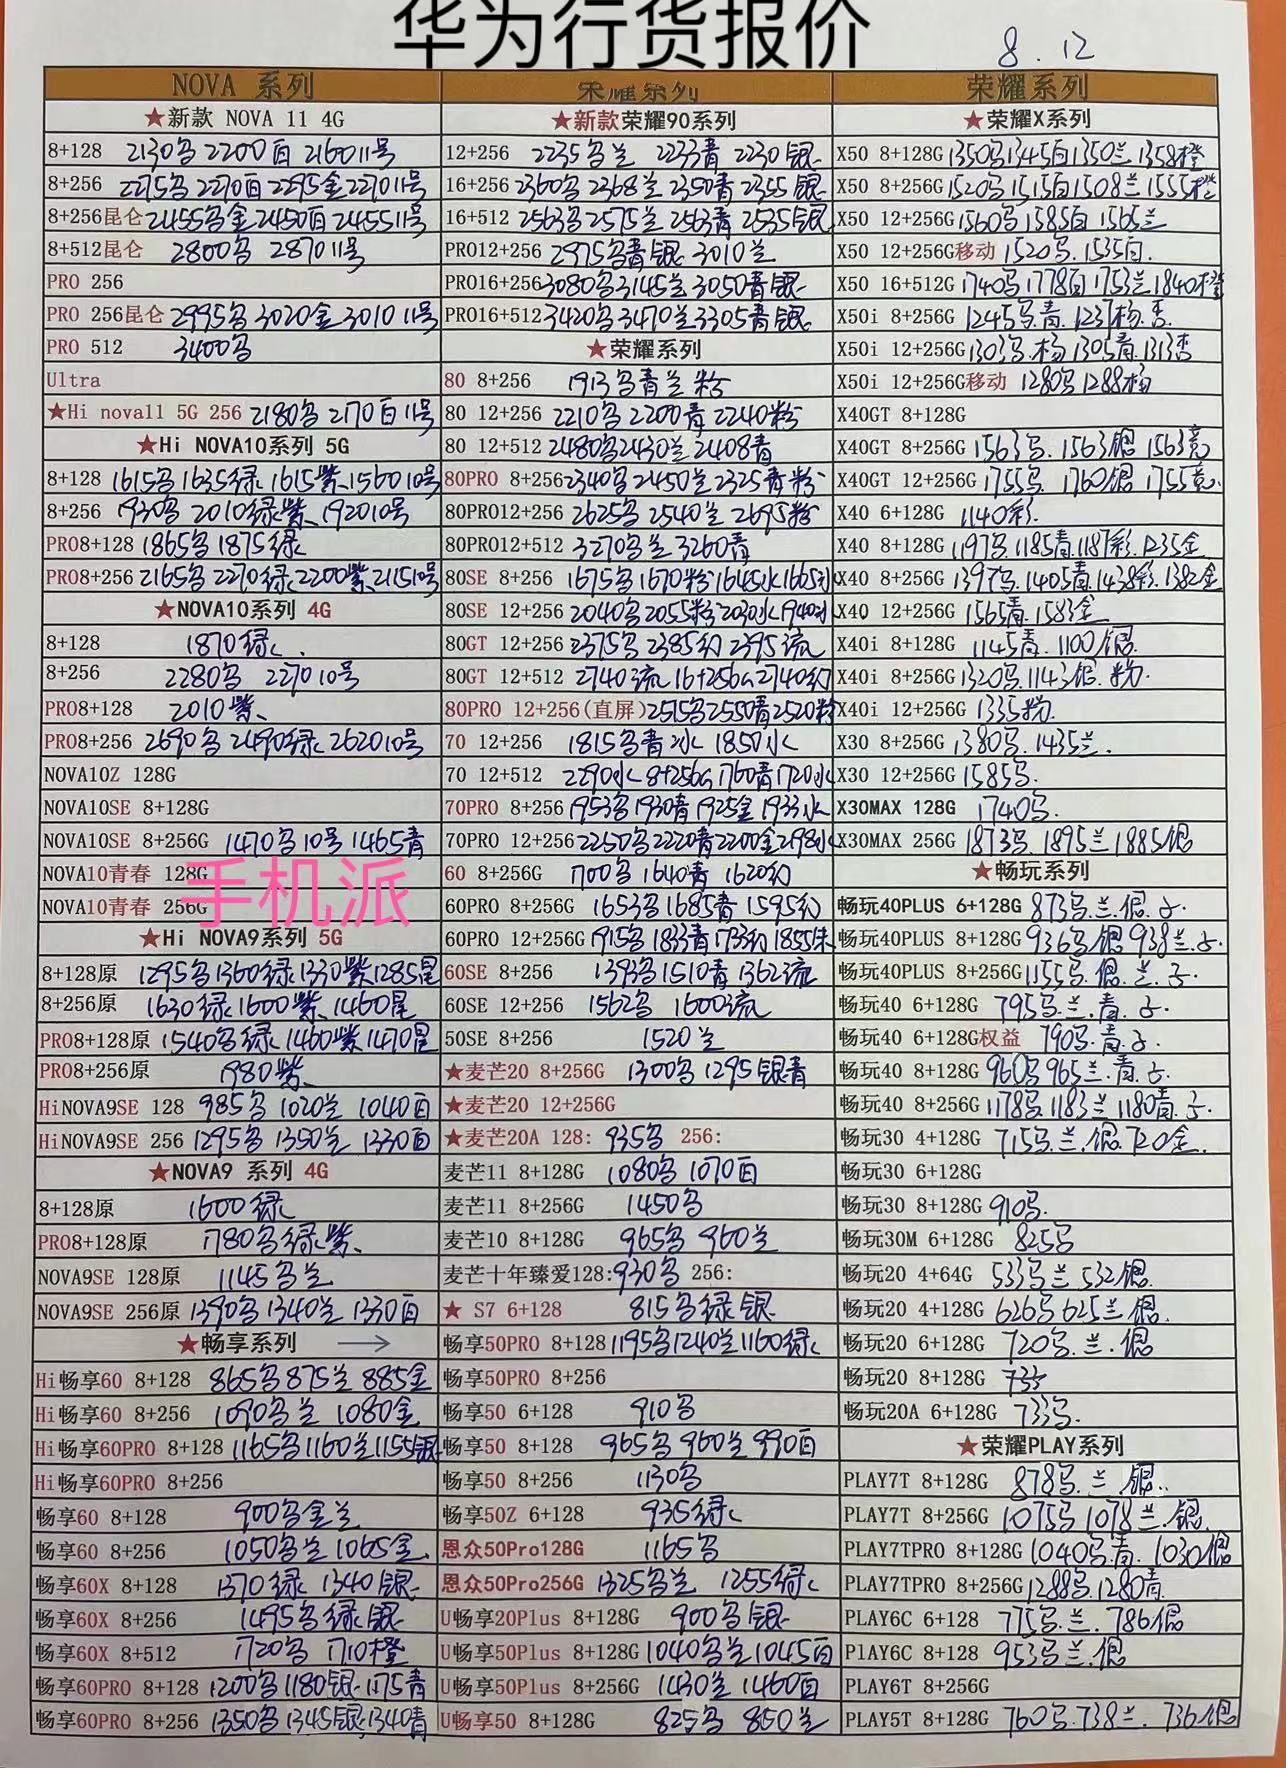 华为行货报价
8.12
NOVA 系列
★新款 NOVA 11 4G
8+128 2130鸟 2200百 2160 11号
8+256 2275鸟 2270百 2295金 2270 11号
8+256昆仑 2455鸟金 2450百 2455 11号
8+512昆仑 2800鸟 2870 11号
PRO 256
PRO 256昆仑 2995鸟 3020金 3010 11号
PRO 512 3400鸟
Ultra
★Hi nova11 5G 256 2180鸟 2170百 11号
★Hi NOVA10系列 5G
8+128 1615鸟 1635绿 1615紫 1560 10号
8+256 1930鸟 2010绿紫 1920 10号
PRO8+128 1865鸟 1875绿
PRO8+256 2165鸟 2270绿 2200紫 2115 10号
★NOVA10系列 4G
8+128 1870绿
8+256 2280鸟 2270 10号
PRO8+128 2010紫
PRO8+256 2690鸟 2490绿 2620 10号
NOVA10Z 128G
NOVA10SE 8+128G
NOVA10SE 8+256G 1470鸟 10号 1465青
NOVA10青春 128G
手机派
NOVA10青春 256G
★Hi NOVA9系列 5G
8+128原 1295鸟 1360绿 1330紫 1285星
8+256原 1630绿 1600紫 1460星
PRO8+128原 1540鸟绿 1460紫 1470星
PRO8+256原 1980紫
HiNOVA9SE 128 985鸟 1020兰 1040百
HiNOVA9SE 256 1295鸟 1350兰 1330百
★NOVA9 系列 4G
8+128原 1600绿
PRO8+128原 1780鸟绿紫
NOVA9SE 128原 1145鸟兰
NOVA9SE 256原 1390鸟 1340兰 1330百
★畅享系列 →
Hi畅享60 8+128 865鸟 875兰 885金
Hi畅享60 8+256 1090鸟兰 1080金
Hi畅享60PRO 8+128 1165鸟 1160兰 1155银
Hi畅享60PRO 8+256
畅享60 8+128 900鸟金兰
畅享60 8+256 1050鸟兰 1065金
畅享60X 8+128 1370绿 1340银
畅享60X 8+256 1495鸟绿银
畅享60X 8+512 1720鸟 1710橙
畅享60PRO 8+128 1200鸟 1180银 1175青
畅享60PRO 8+256 1350鸟 1345银 1340青
荣耀系列
★新款荣耀90系列
12+256 2235鸟兰 2233青 2230银
16+256 2360鸟 2368兰 2350青 2355银
16+512 2563鸟 2575兰 2563青 2535银
PRO12+256 2975鸟青银 3010兰
PRO16+256 3080鸟 3145兰 3050青银
PRO16+512 3420鸟 3470兰 3305青银
★荣耀系列
80 8+256 1913鸟青兰粉
80 12+256 2210鸟 2200青 2240粉
80 12+512 2480鸟 2430兰 2408青
80PRO 8+256 2340鸟 2450兰 2325青粉
80PRO12+256 2625鸟 2540兰 2695粉
80PRO12+512 3270鸟兰 3260青
80SE 8+256 1675鸟 1670粉 1645水 1665冰
80SE 12+256 2040鸟 2055粉 2030水 1940冰
80GT 12+256 2375鸟 2385幻 2395流
80GT 12+512 2740流 16+256G 2740幻
80PRO 12+256(直屏) 2515鸟 2550青 2520粉
70 12+256 1815鸟青冰 1850水
70 12+512 2290水 8+256G 1760青 1720水
70PRO 8+256 1953鸟 1930青 1925金 1933水
70PRO 12+256 2250鸟 2220青 2200金 2198水
60 8+256G 1700鸟 1640青 1620幻
60PRO 8+256G 1653鸟 1685青 1595幻
60PRO 12+256G 1915鸟 1833青 1793幻 1855朱
60SE 8+256 1393鸟 1510青 1362流
60SE 12+256 1562鸟 1600流
50SE 8+256 1520兰
★麦芒20 8+256G 1300鸟 1295银青
★麦芒20 12+256G
★麦芒20A 128: 935鸟 256:
麦芒11 8+128G 1080鸟 1070百
麦芒11 8+256G 1450鸟
麦芒10 8+128G 965鸟 960兰
麦芒十年臻爱128: 930鸟 256:
★ S7 6+128 815鸟绿银
畅享50PRO 8+128 1195鸟 1240兰 1160绿
畅享50PRO 8+256
畅享50 6+128 910鸟
畅享50 8+128 965鸟 960兰 990百
畅享50 8+256 1130鸟
畅享50Z 6+128 935绿
恩众50Pro128G 1165鸟
恩众50Pro256G 1325鸟兰 1255绿
U畅享20Plus 8+128G 900鸟银
U畅享50Plus 8+128G 1040鸟兰 1045百
U畅享50Plus 8+256G 1430兰 1460百
U畅享50 8+128G 825鸟 850兰
荣耀系列
★荣耀X系列
X50 8+128G 1350鸟 1345百 1350兰 1358橙
X50 8+256G 1520鸟 1515百 1508兰 1555橙
X50 12+256G 1560鸟 1585百 1565兰
X50 12+256G移动 1520鸟. 1535百.
X50 16+512G 1740鸟 1778百 1753兰 1840橙
X50i 8+256G 1245鸟.青. 1237杨.杏.
X50i 12+256G 1303鸟.杨 1305青 1313杏
X50i 12+256G移动 1280鸟 1288杨
X40GT 8+128G
X40GT 8+256G 1563鸟. 1563银 1563竞
X40GT 12+256G 1755鸟. 1760银 1755竞.
X40 6+128G 1140彩.
X40 8+128G 1197鸟 1185青 1187彩. 1235金
X40 8+256G 1397鸟. 1405青 1438彩. 1382金
X40 12+256G 1565青. 1583金
X40i 8+128G 1145青. 1100银.
X40i 8+256G 1320鸟. 1143银.粉.
X40i 12+256G 1335粉.
X30 8+256G 1380鸟. 1435兰.
X30 12+256G 1585鸟.
X30MAX 128G 1740鸟.
X30MAX 256G 1873鸟. 1895兰 1885银
★畅玩系列
畅玩40PLUS 6+128G 873鸟.兰.银.子.
畅玩40PLUS 8+128G 936鸟.银 938兰.子.
畅玩40PLUS 8+256G 1155鸟.银.兰.子.
畅玩40 6+128G 795鸟.兰.青.子.
畅玩40 6+128G权益 790鸟.青.子.
畅玩40 8+128G 960鸟 965兰.青.子.
畅玩40 8+256G 1178鸟 1183兰 1180青.子.
畅玩30 4+128G 715鸟.兰.银. 720金.
畅玩30 6+128G
畅玩30 8+128G 910鸟.
畅玩30M 6+128G 825鸟
畅玩20 4+64G 533鸟兰 532银.
畅玩20 4+128G 626鸟 625兰.银.
畅玩20 6+128G 720鸟.兰.银
畅玩20 8+128G 735
畅玩20A 6+128G 733鸟.
★荣耀PLAY系列
PLAY7T 8+128G 878鸟.兰.银..
PLAY7T 8+256G 1075鸟 1078兰.银.
PLAY7TPRO 8+128G 1040鸟.青. 1030银
PLAY7TPRO 8+256G 1288鸟. 1280青.
PLAY6C 6+128 775鸟.兰. 786银.
PLAY6C 8+128 953鸟兰.银
PLAY6T 8+256G
PLAY5T 8+128G 760鸟. 738兰. 736银